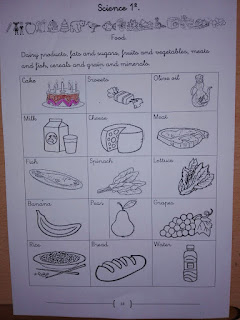 Science 1º.
Food
Dairy products, fats and sugars, fruits and vegetables, meats
and fish, cereals and grain and minerals.
Cake Sweets Olive oil
Milk Cheese Meat
Fish Spinach Lettuce
Banana Pear Grapes
Rice Bread Water